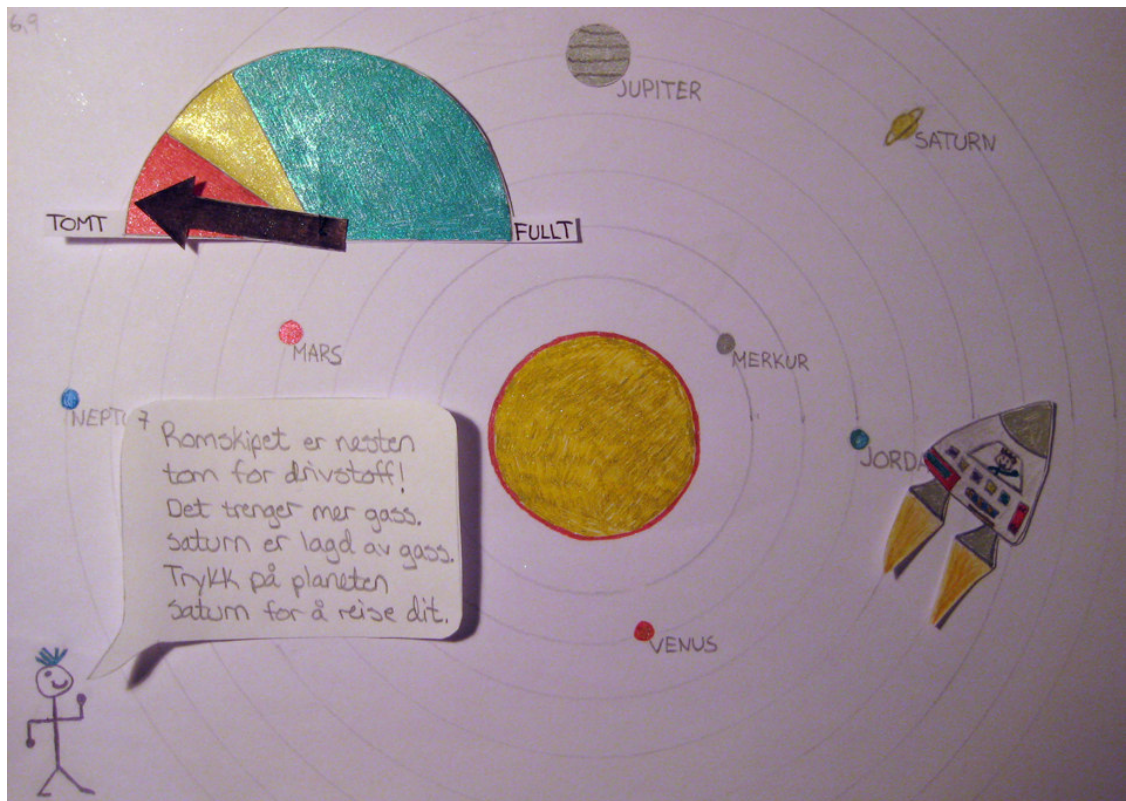 6,9
JUPITER
SATURN
TOMT
FULLT
MARS
MERKUR
NEPTU
JORDA
7
Romskipet er nesten
tom for drivstoff!
Det trenger mer gass.
saturn er lagd av gass.
Trykk på planeten
saturn for å reise dit.
VENUS